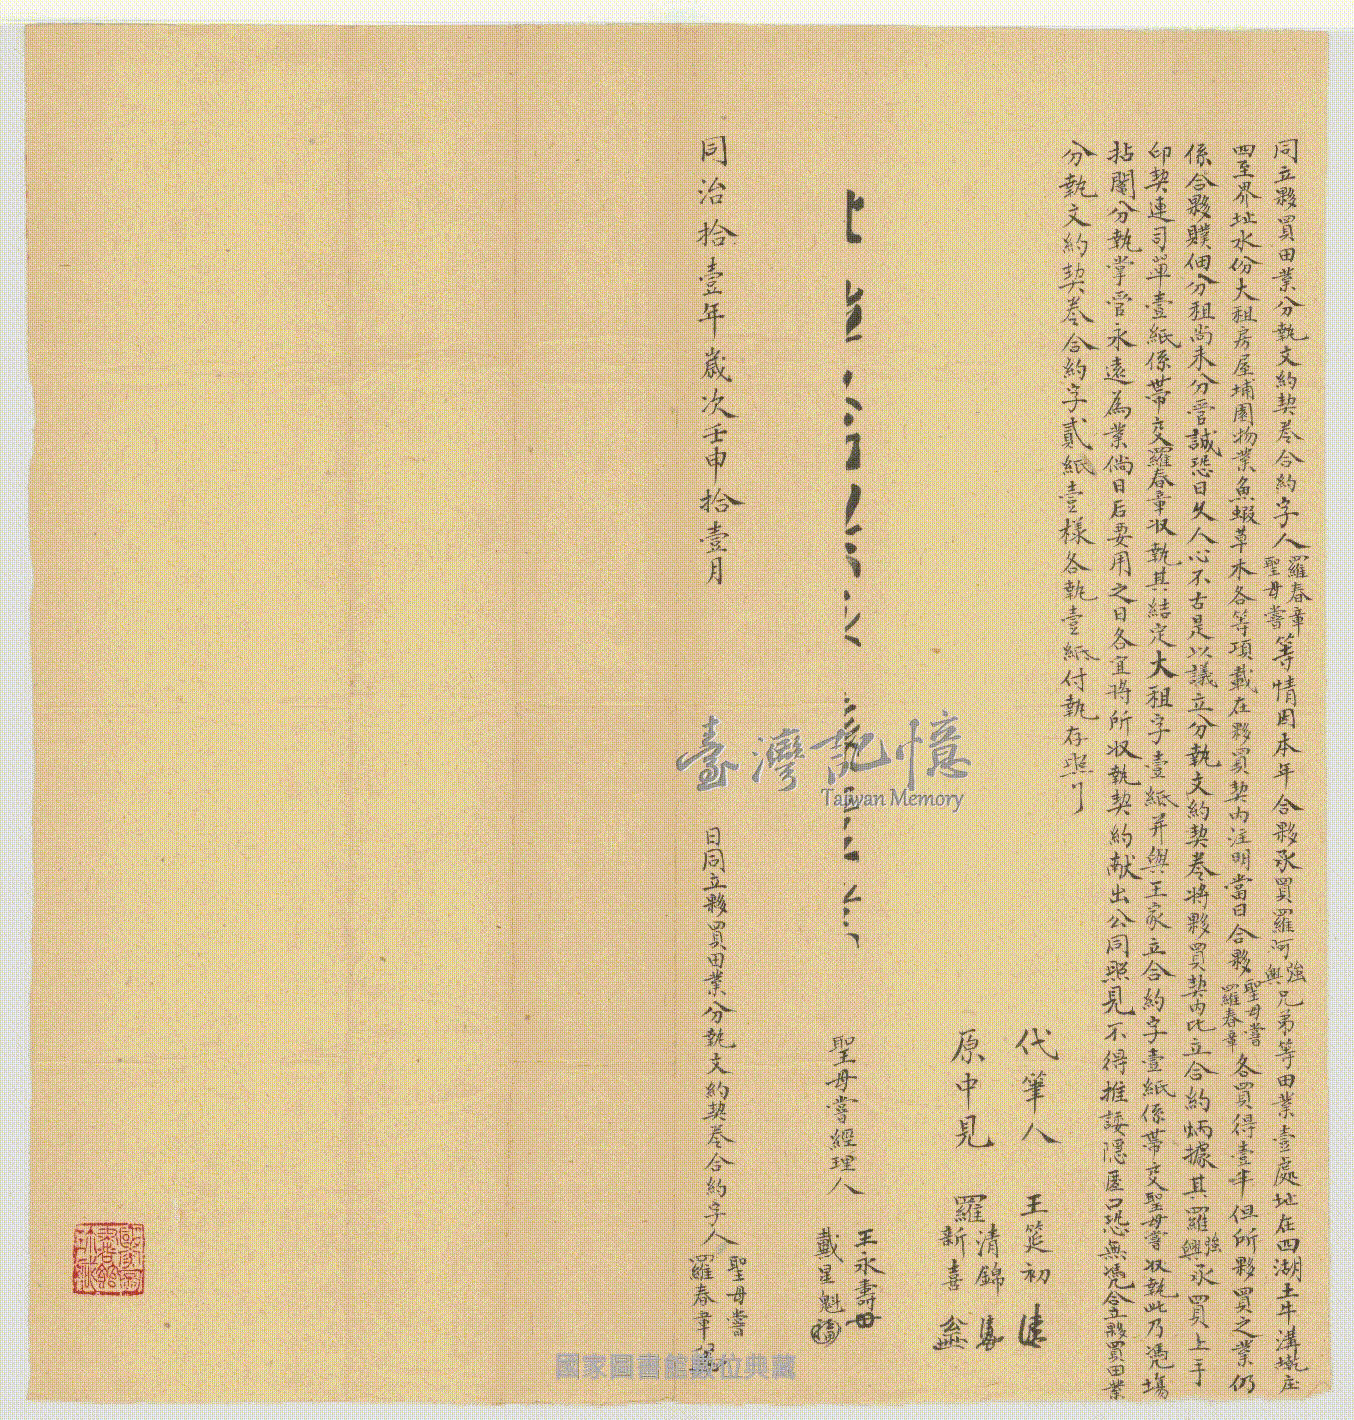 同立夥買田業分執文約契卷合約字人羅春章聖母嘗等情因本年合夥承買羅阿強興兄弟等田業壹處址在四湖土牛溝墘庄
四至界址水份大租房屋埔園物業魚蝦草木各等項載在夥買契內注明當日合夥聖母嘗羅春章各買得壹半但所夥買之業仍
係合夥贌佃分租尚未分管誠恐日久人心不古是以議立分執文約契卷將夥買契內比立合約炳據其羅強興承買上手
印契連司單壹紙係帶交羅春章收執其結定大租字壹紙并與王家立合約字壹紙係帶交聖母嘗收執此乃憑塲
拈鬮分執掌管永遠為業倘日后要用之日各宜將所收執契約献出公同照見不得推諉隱匿口恐無憑仝立夥買田業
分執文約契卷合約字貳紙壹樣各執壹紙付執存照
代筆人 王筵初
原中見 羅清錦 新喜
聖母嘗經理人 王永壽 戴星魁
同治拾壹年歲次壬申拾壹月 日同立夥買田業分執文約契卷合約字人聖母嘗 羅春章
臺灣記憶
Taiwan Memory
國家圖書館數位典藏